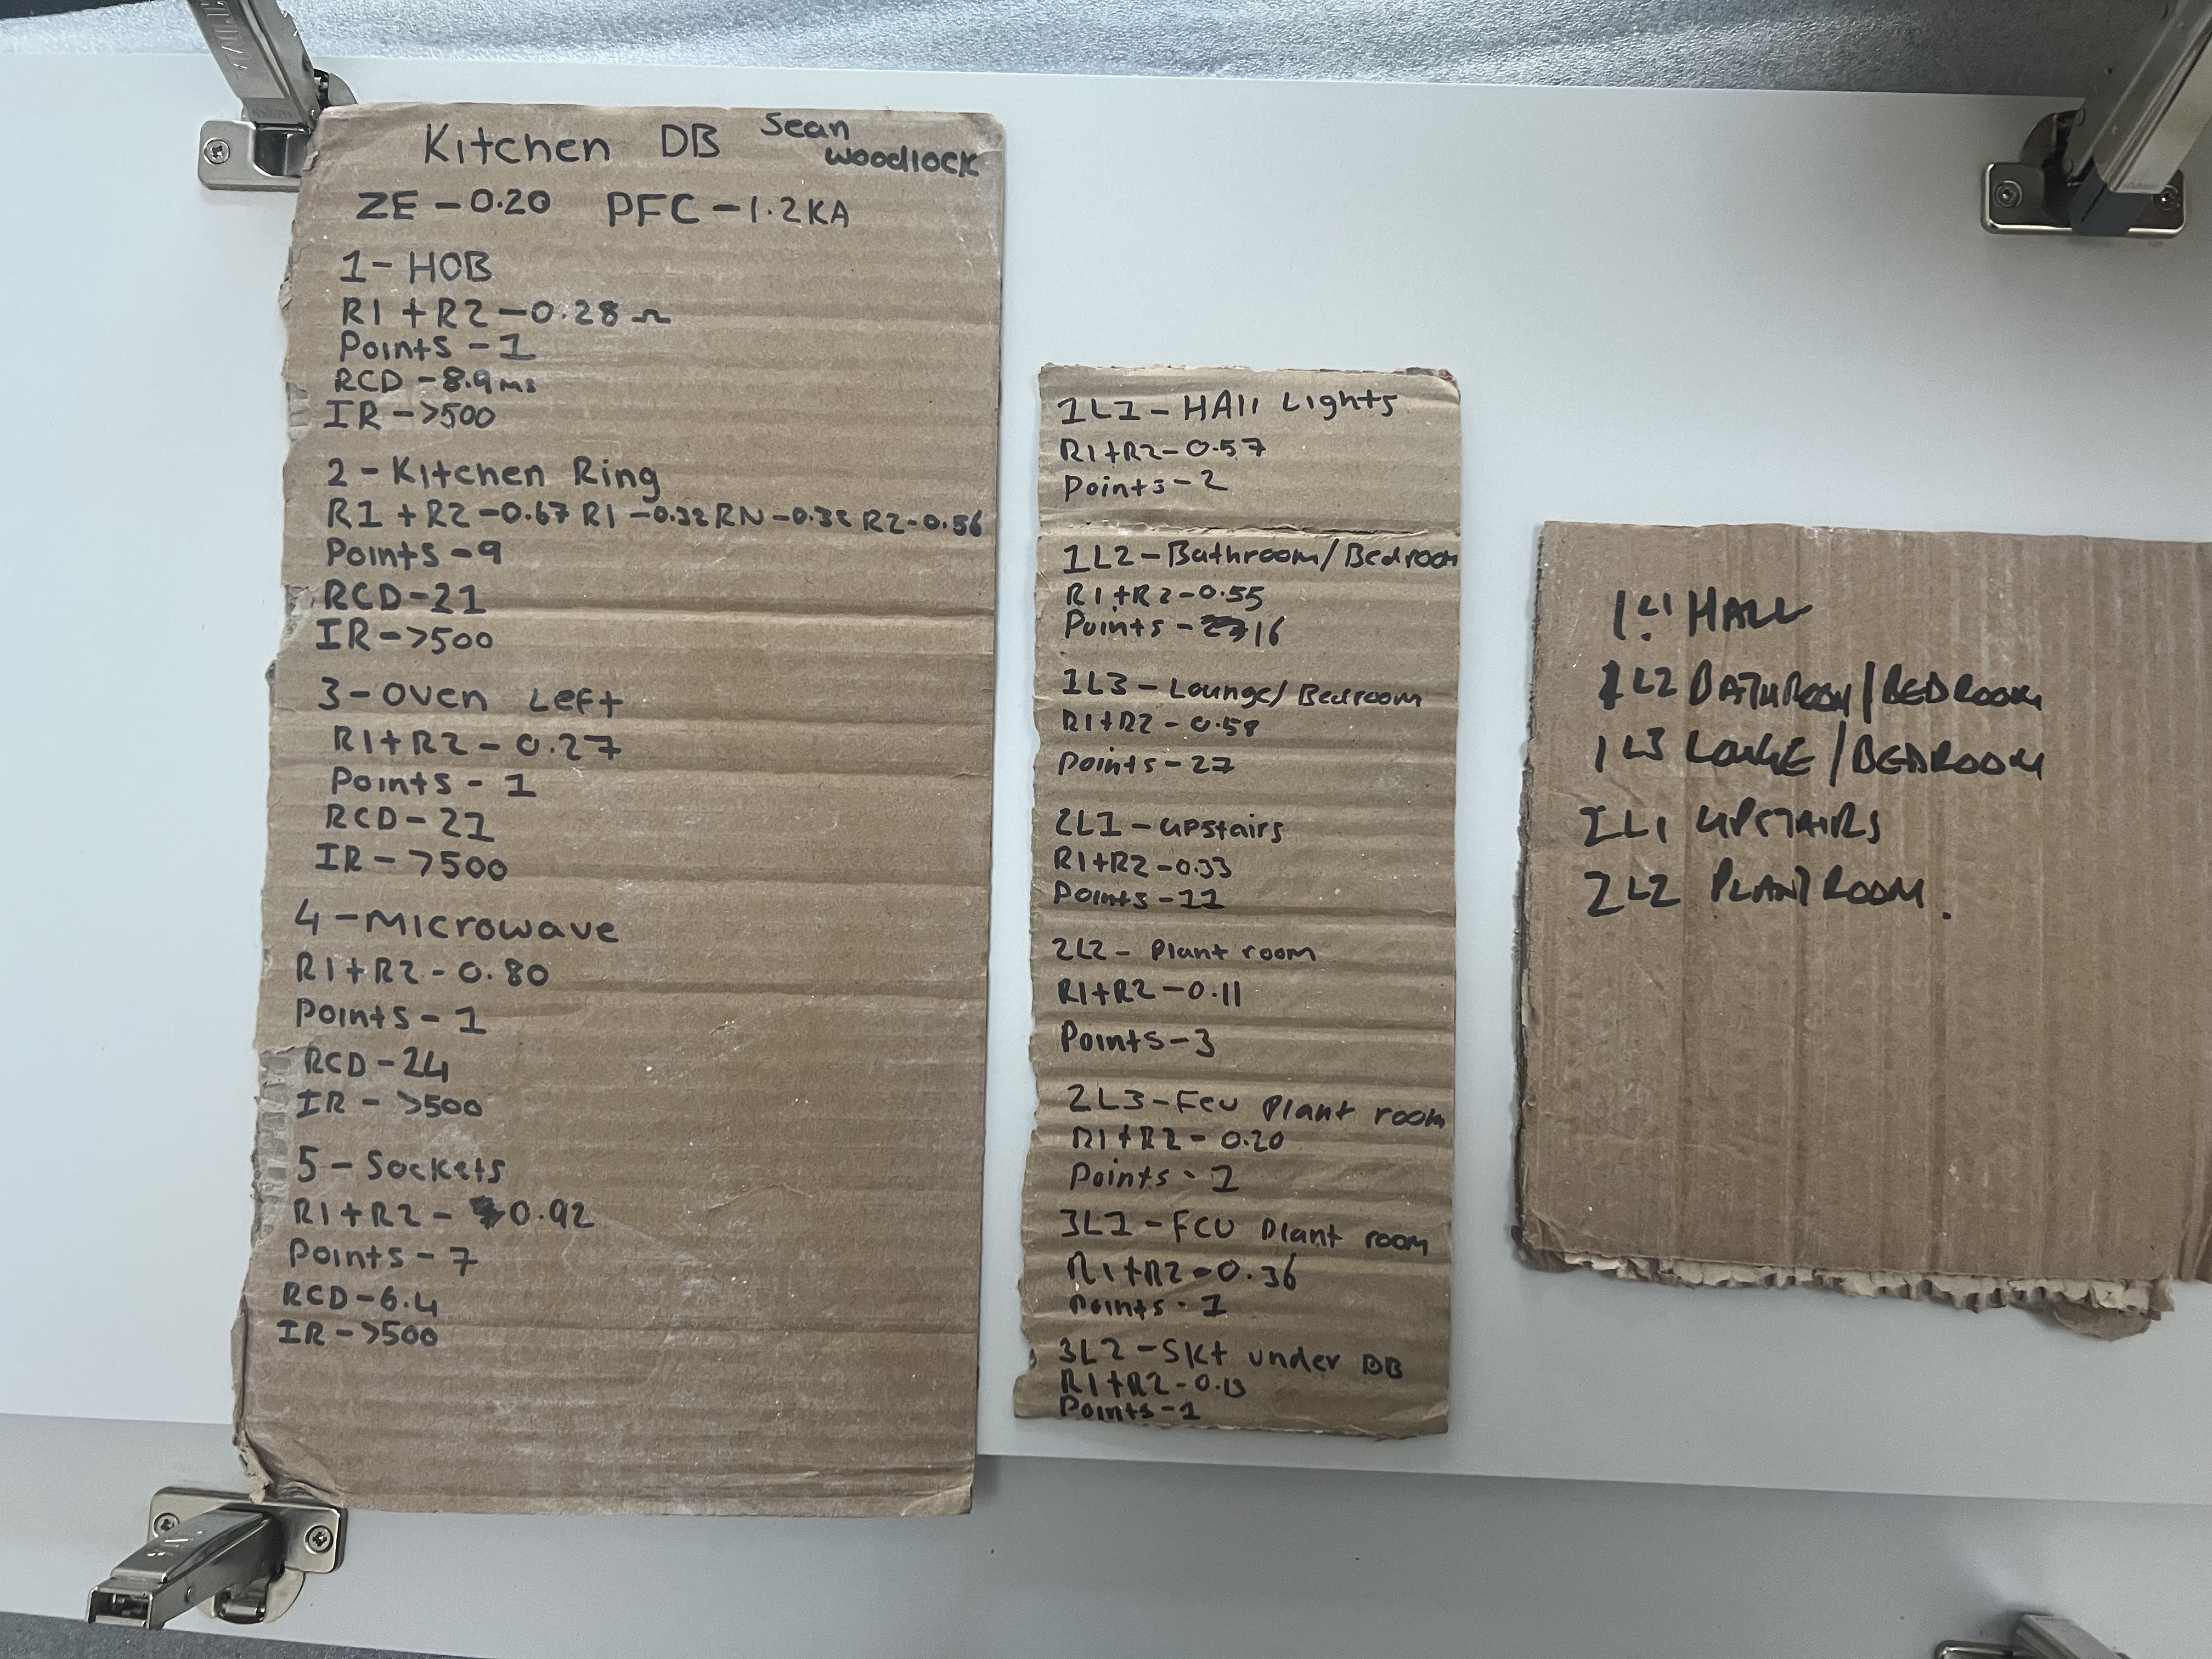 Kitchen DB Sean woodlock
ZE - 0.20 PFC - 1.2KA
1 - HOB
R1 + R2 - 0.28 Ω
Points - 1
RCD - 8.9ms
IR - >500
2 - Kitchen Ring
R1 + R2 - 0.67 R1 - 0.32 RN - R2 - 0.56
Points - 9
RCD - 21
IR - >500
3 - Oven Left
R1+R2 - 0.27
Points - 1
RCD - 21
IR - >500
4 - Microwave
R1+R2 - 0.80
Points - 1
RCD - 24
IR - >500
5 - Sockets
R1+R2 - 0.92
Points - 7
RCD - 6.4
IR - >500
1L1 - HAll Lights
R1+R2 - 0.57
Points - 2
1L2 - Bathroom/Bedroom
R1+R2 - 0.55
Points - 16
1L3 - Lounge/Bedroom
R1+R2 - 0.58
Points - 27
2L1 - upstairs
R1+R2 - 0.33
Points - 11
2L2 - Plant room
R1+R2 - 0.11
Points - 3
2L3 - Fcu Plant room
R1+R2 - 0.20
Points - 1
3L1 - FCU Plant room
R1+R2 - 0.36
Points - 1
3L2 - Skt under DB
R1+R2 - 0.13
Points - 1
1L1 HALL
1L2 BATHROOM/BEDROOM
1L3 LOUNGE/BEDROOM
2L1 UPSTAIRS
2L2 PLANT ROOM.